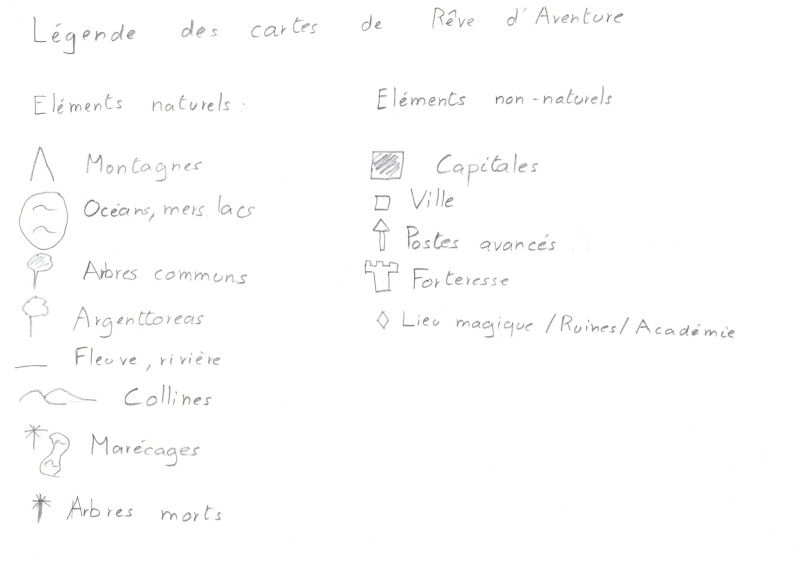 Légende des cartes de Rêve d'Aventure
Eléments naturels :
Montagnes
Océans, mers lacs
Arbres communs
Argenttoreas
Fleuve, rivière
Collines
Marécages
Arbres morts
Eléments non-naturels
Capitales
Ville
Postes avancés
Forteresse
Lieu magique / Ruines / Académie